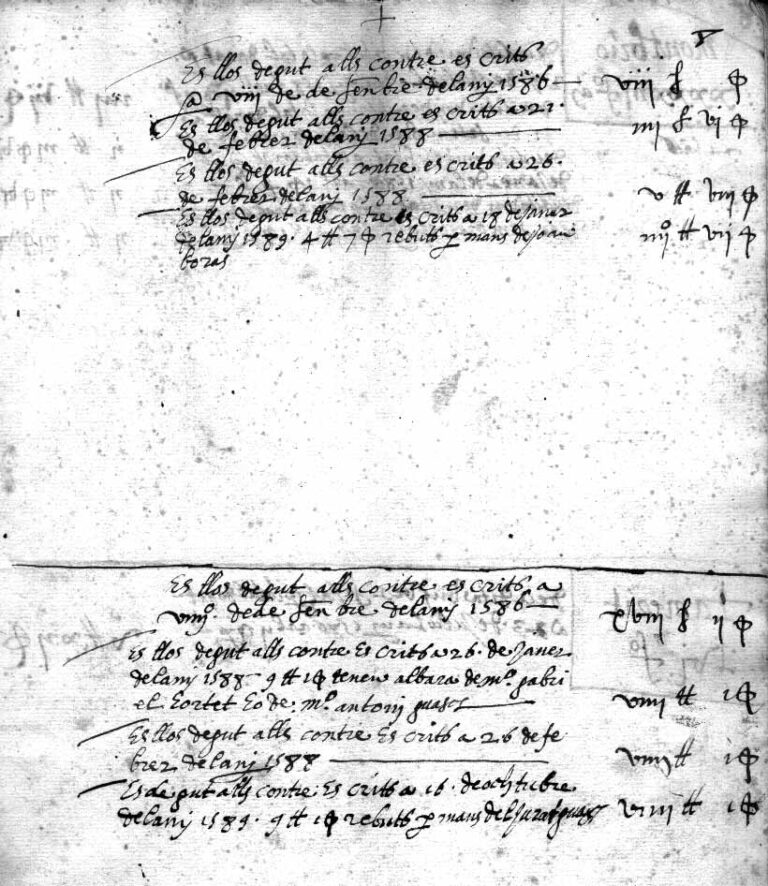 Es llos degut alls contre es crits
a viii de de sembre delany 1586 — viii ł ϕ
Es llos degut alls contre es crits a 21.
de febrer delany 1588 — iiii ł vi ϕ
Es llos degut alls contre es crits a 26.
de febrer delany 1588 — v tt viii ϕ
Es llos degut alls contre es crits a 18 de Janer
delany 1589. 4 tt 7 ϕ rebuts p mans de Joan iiiiº tt vii ϕ
boras
Es llos degut alls contre es crits a
viiiiº. de de sembre delany 1586 — xviii ł ii ϕ
Es llos degut alls contre Es crits a 26. de Janer
delany 1588 9 tt 1 ϕ tenen albara de mº. gabri
el de. mº antoni guasc — viiii tt i ϕ
Es llos degut alls contre Es crits a 26 de fe
brer delany 1588 — viiii tt i ϕ
Es degut alls contre Es crits a 16. de ochtubre
delany 1589. 9 tt 1 ϕ rebuts p mans del Jurat guasc viiii tt i ϕ